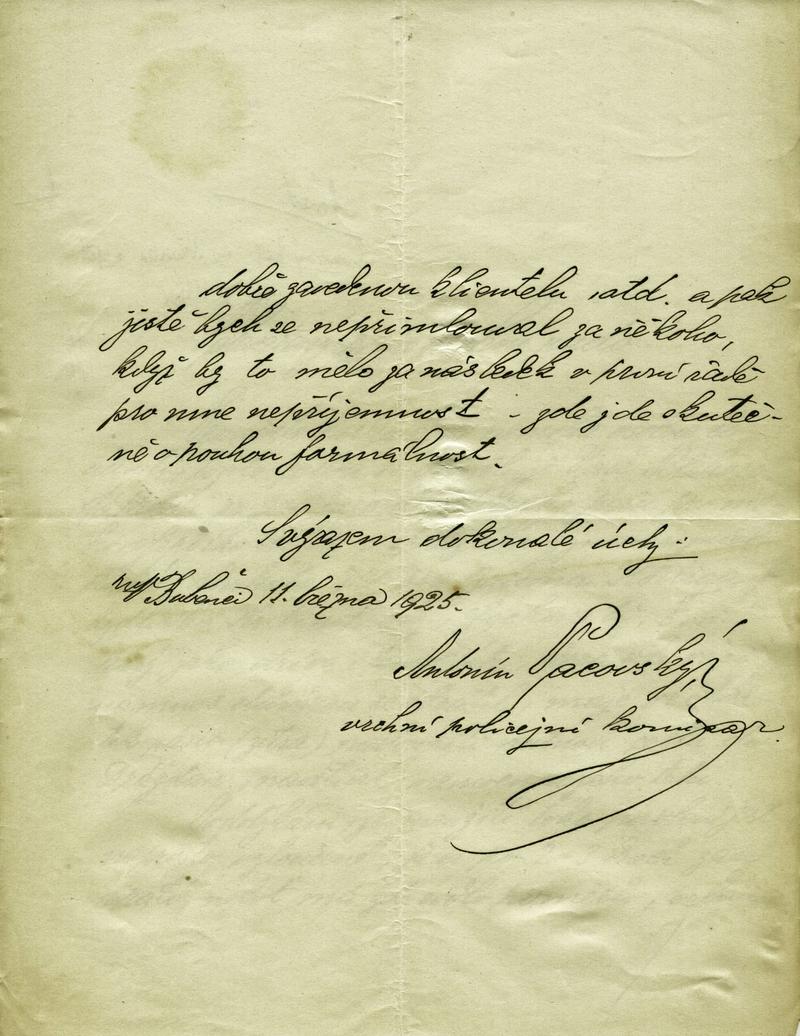 dobře zavedenou klientelu, atd. a pak
jistě bych se nepřimlouval za někoho,
když by to mělo za následek v první řadě
pro mne nepříjemnost - zde jde skuteč-
ně o pouhou formálnost.
S výrazem dokonalé úcty:
v Bubenči 11. března 1925.
Antonín Pacovský,
vrchní policejní komisař.